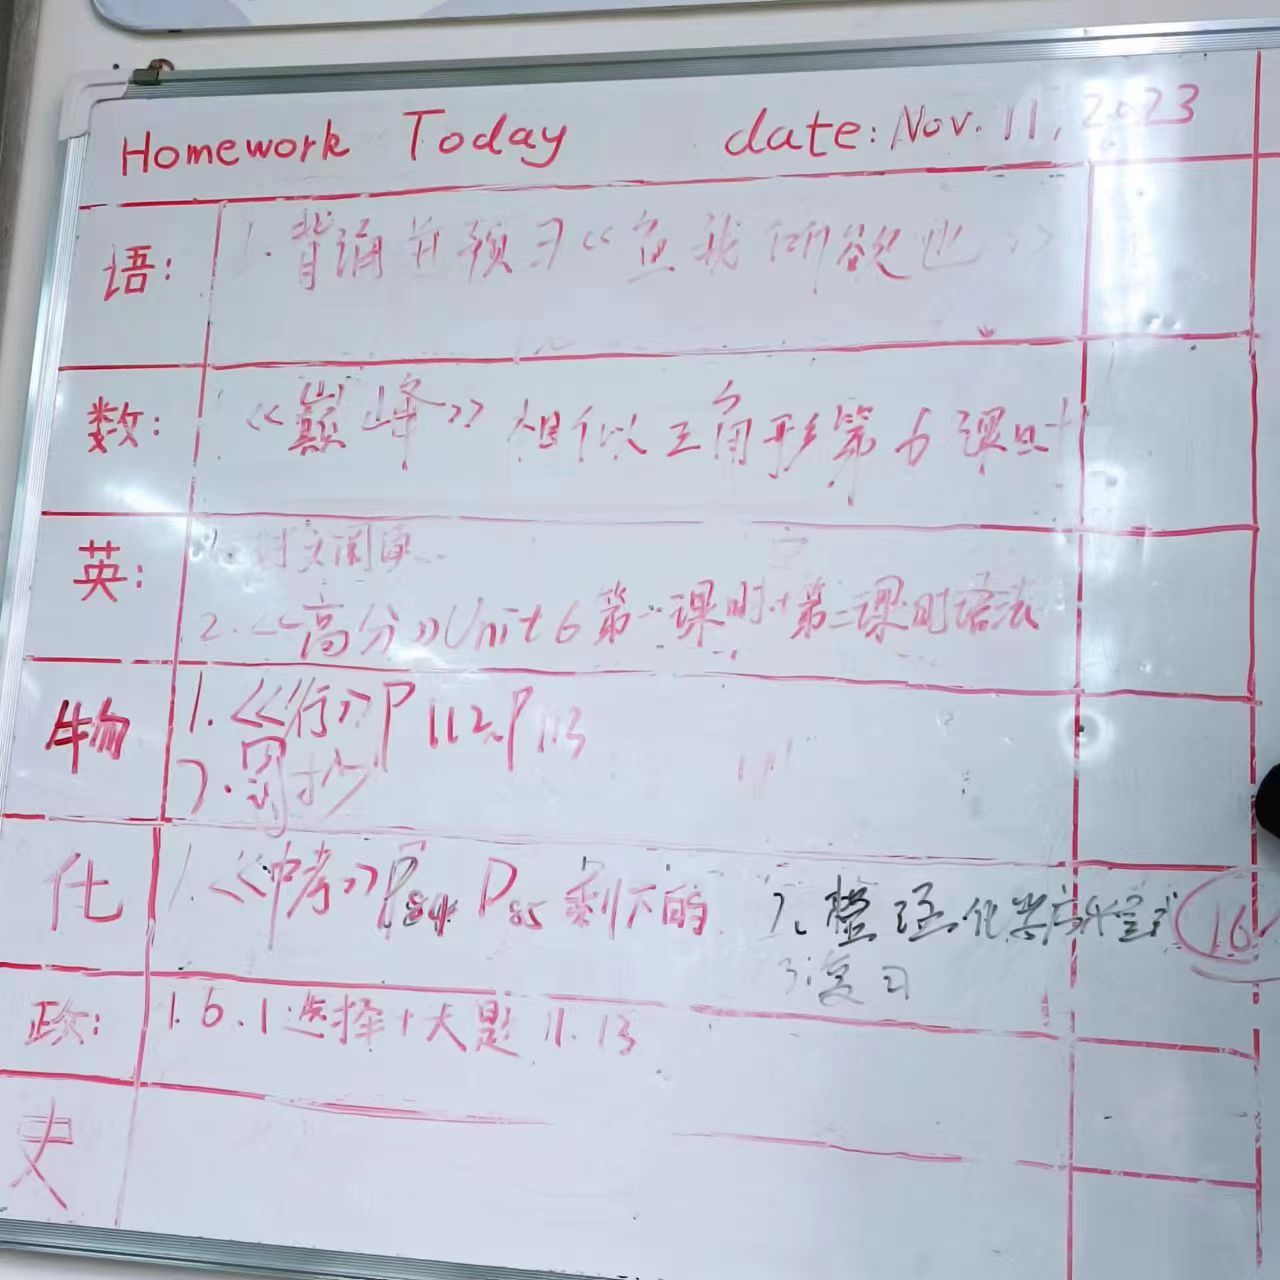 Homework Today date: Nov. 11, 2023
语: 1. 背诵并预习《鱼我所欲也》
数: 《巅峰》相似三角形第6课时
英: 1. 限时阅读
2. 《高分》Unit 6 第一课时+第二课时语法
物 1. 《行》P112、P113
2. 罚抄
化 1. 《中考》P84 P85 剩下的 2. 整理化学方程式 16
3. 复习
政: 1. 6.1 选择+大题 11. 13
史